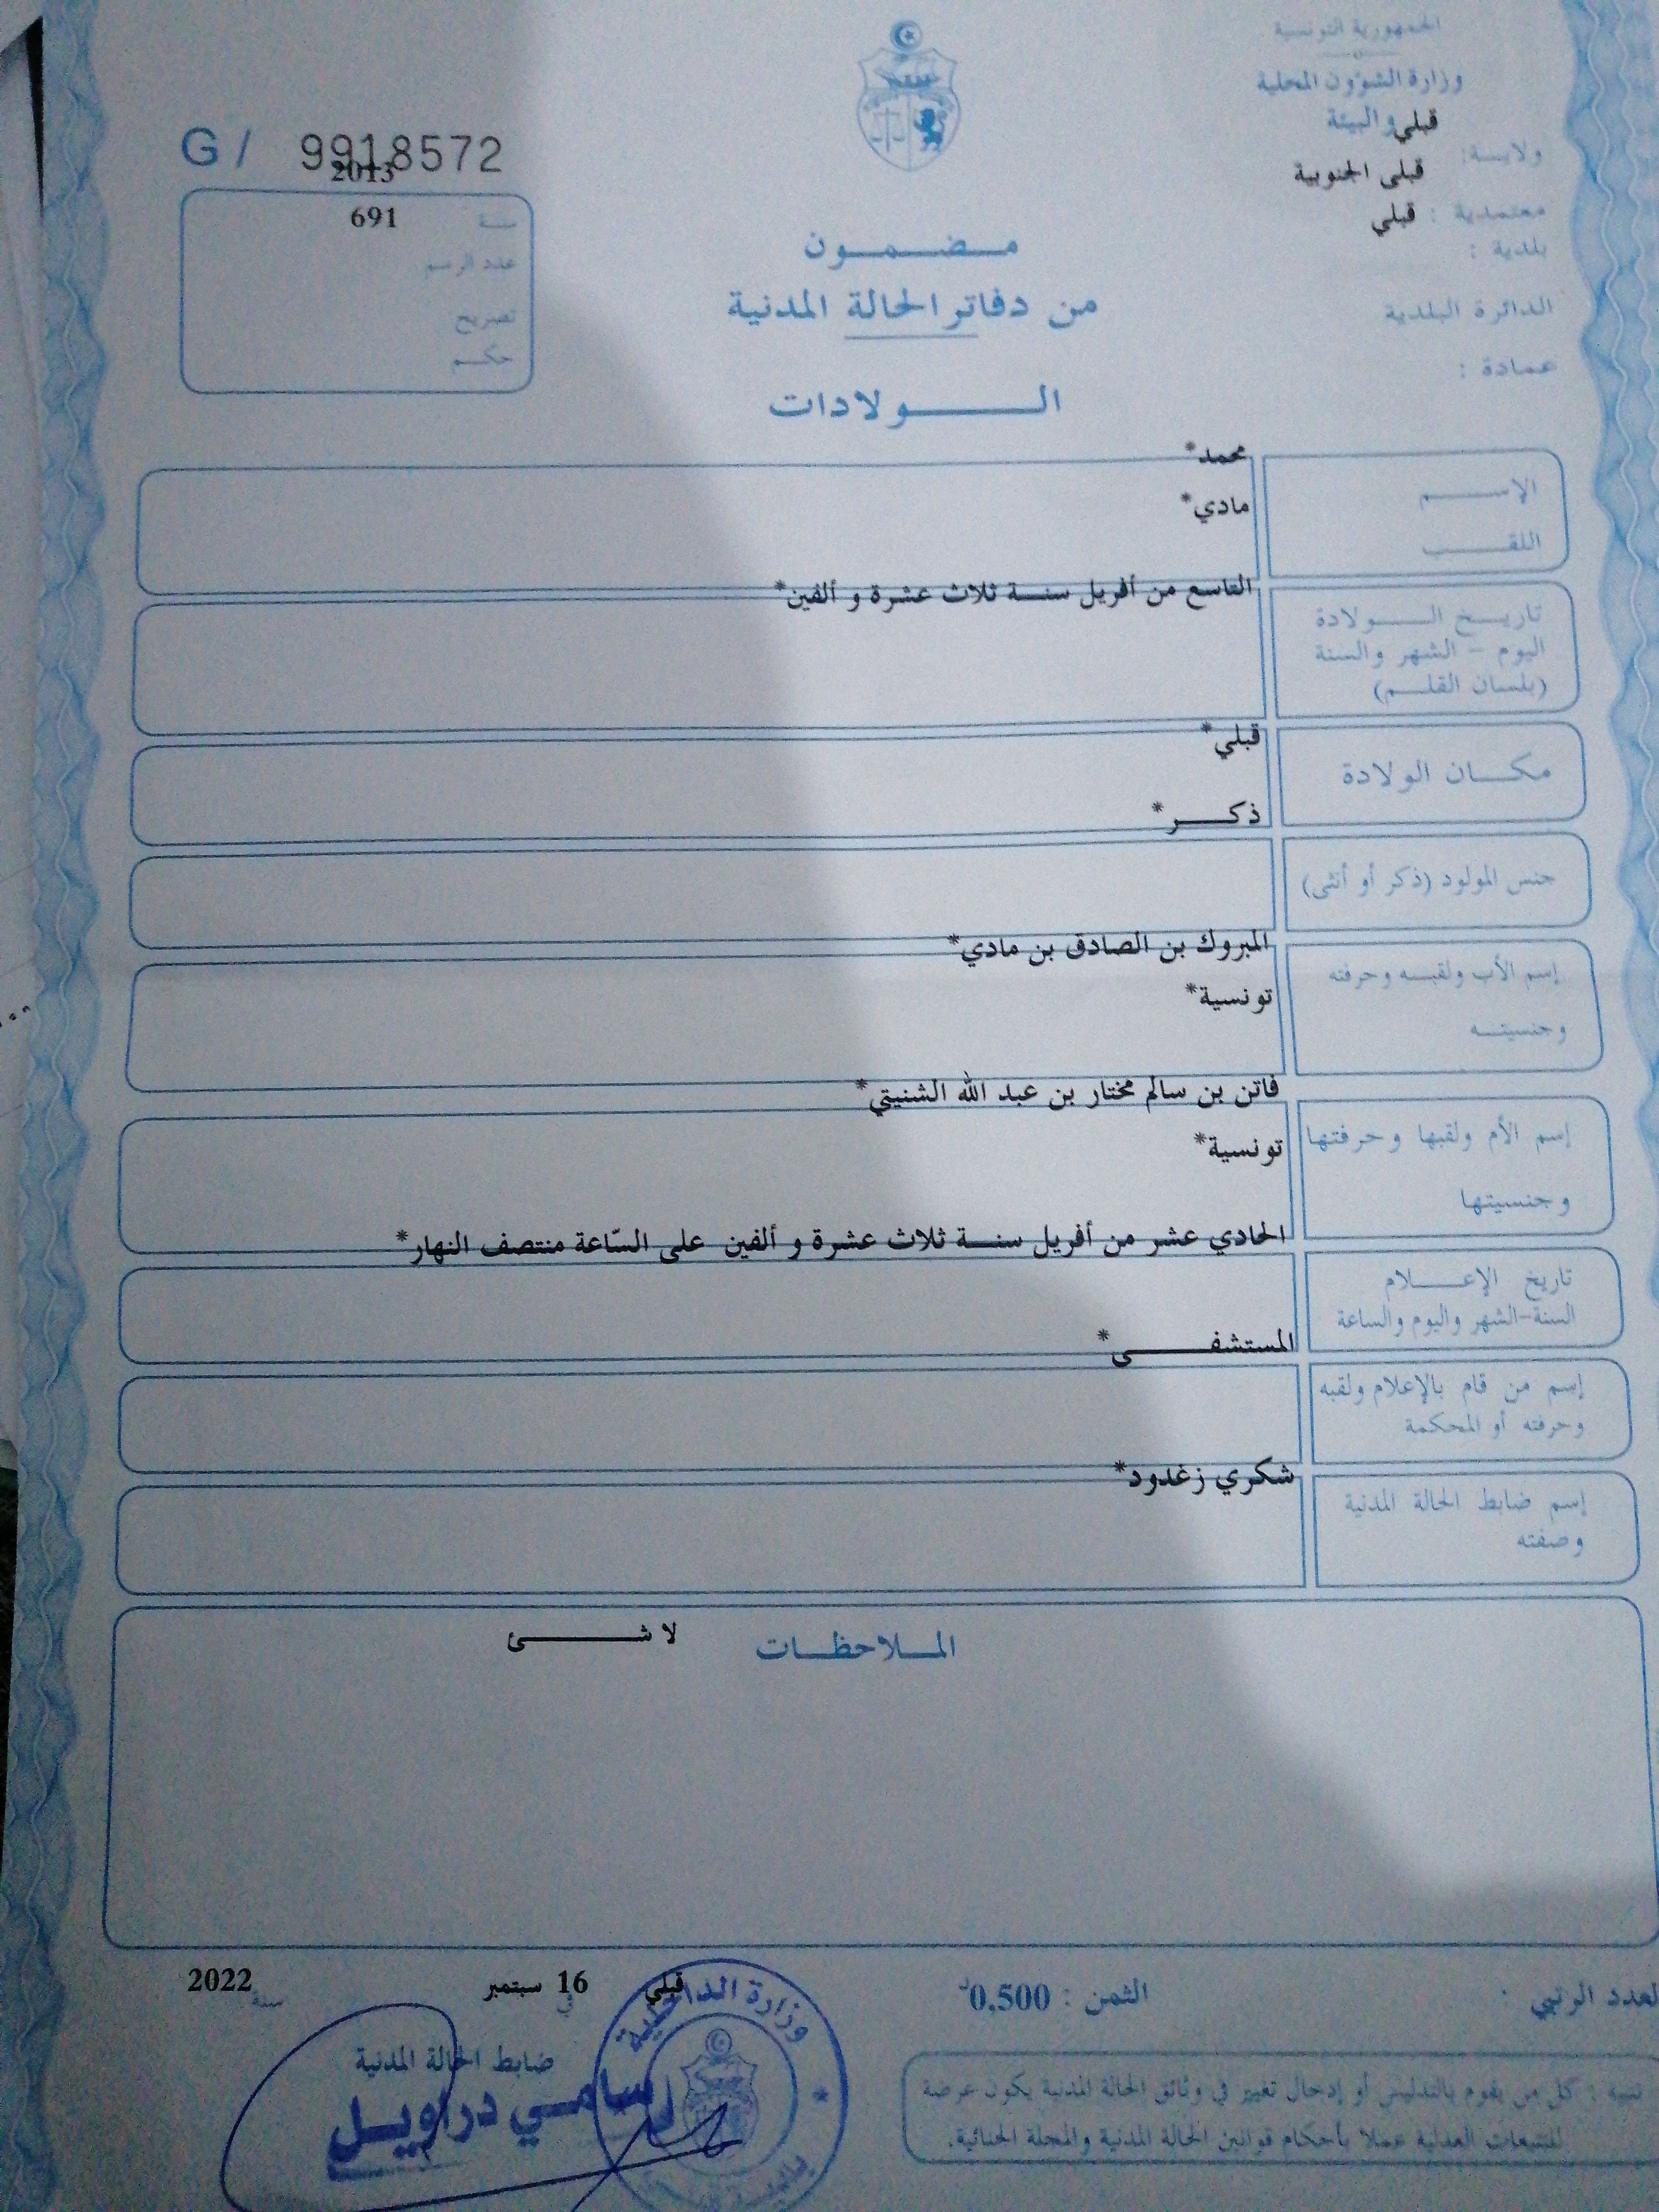 الجمهورية التونسية
وزارة الشؤون المحلية
والبيئة
قبلي
ولايـــة:
قبلي الجنوبية
معتمدية :
قبلي
بلدية :
الدائرة البلدية
عمادة :
G / 9918572
2013
سنــة
691
عدد الرسم
تصريح
حكــم
مـضـمـون
من دفاتر الحالة المدنية
الـــولادات
الإســـم
محمد*
اللقـــب
مادي*
تاريــخ الـــولادة
اليوم - الشهر والسنة
(بلسان القلــم)
التاسع من أفريل سنــة ثلاث عشرة و ألفين*
مكــان الولادة
قبلي*
ذكـــر*
جنس المولود (ذكر أو أنثى)
إسم الأب ولقبــه وحرفته
المبروك بن الصادق بن مادي*
وجنسيتــه
تونسية*
إسم الأم ولقبها وحرفتها
فاتن بن سالم مختار بن عبد الله الشنيتي*
وجنسيتها
تونسية*
تاريخ الإعــــلام
السنة-الشهر واليوم والساعة
الحادي عشر من أفريل سنــة ثلاث عشرة و ألفين على السّاعة منتصف النهار*
إسم من قام بالإعلام ولقبه
وحرفته أو المحكمة
المستشفـــــى*
إسم ضابط الحالة المدنية
وصفته
شكري زغدود*
الملاحظــات
لا شـــــئ
العدد الرتبي :
الثمن : 0,500د
قبلي
في
16 سبتمبر
سنة
2022
ضابط الحالة المدنية
سامي دراويل
وزارة الداخلية
تنبيه : كل من يقوم بالتدليس أو إدخال تغيير في وثائق الحالة المدنية يكون عرضة
للتتبعات العدلية عملا بأحكام قوانين الحالة المدنية والمجلة الجنائية.